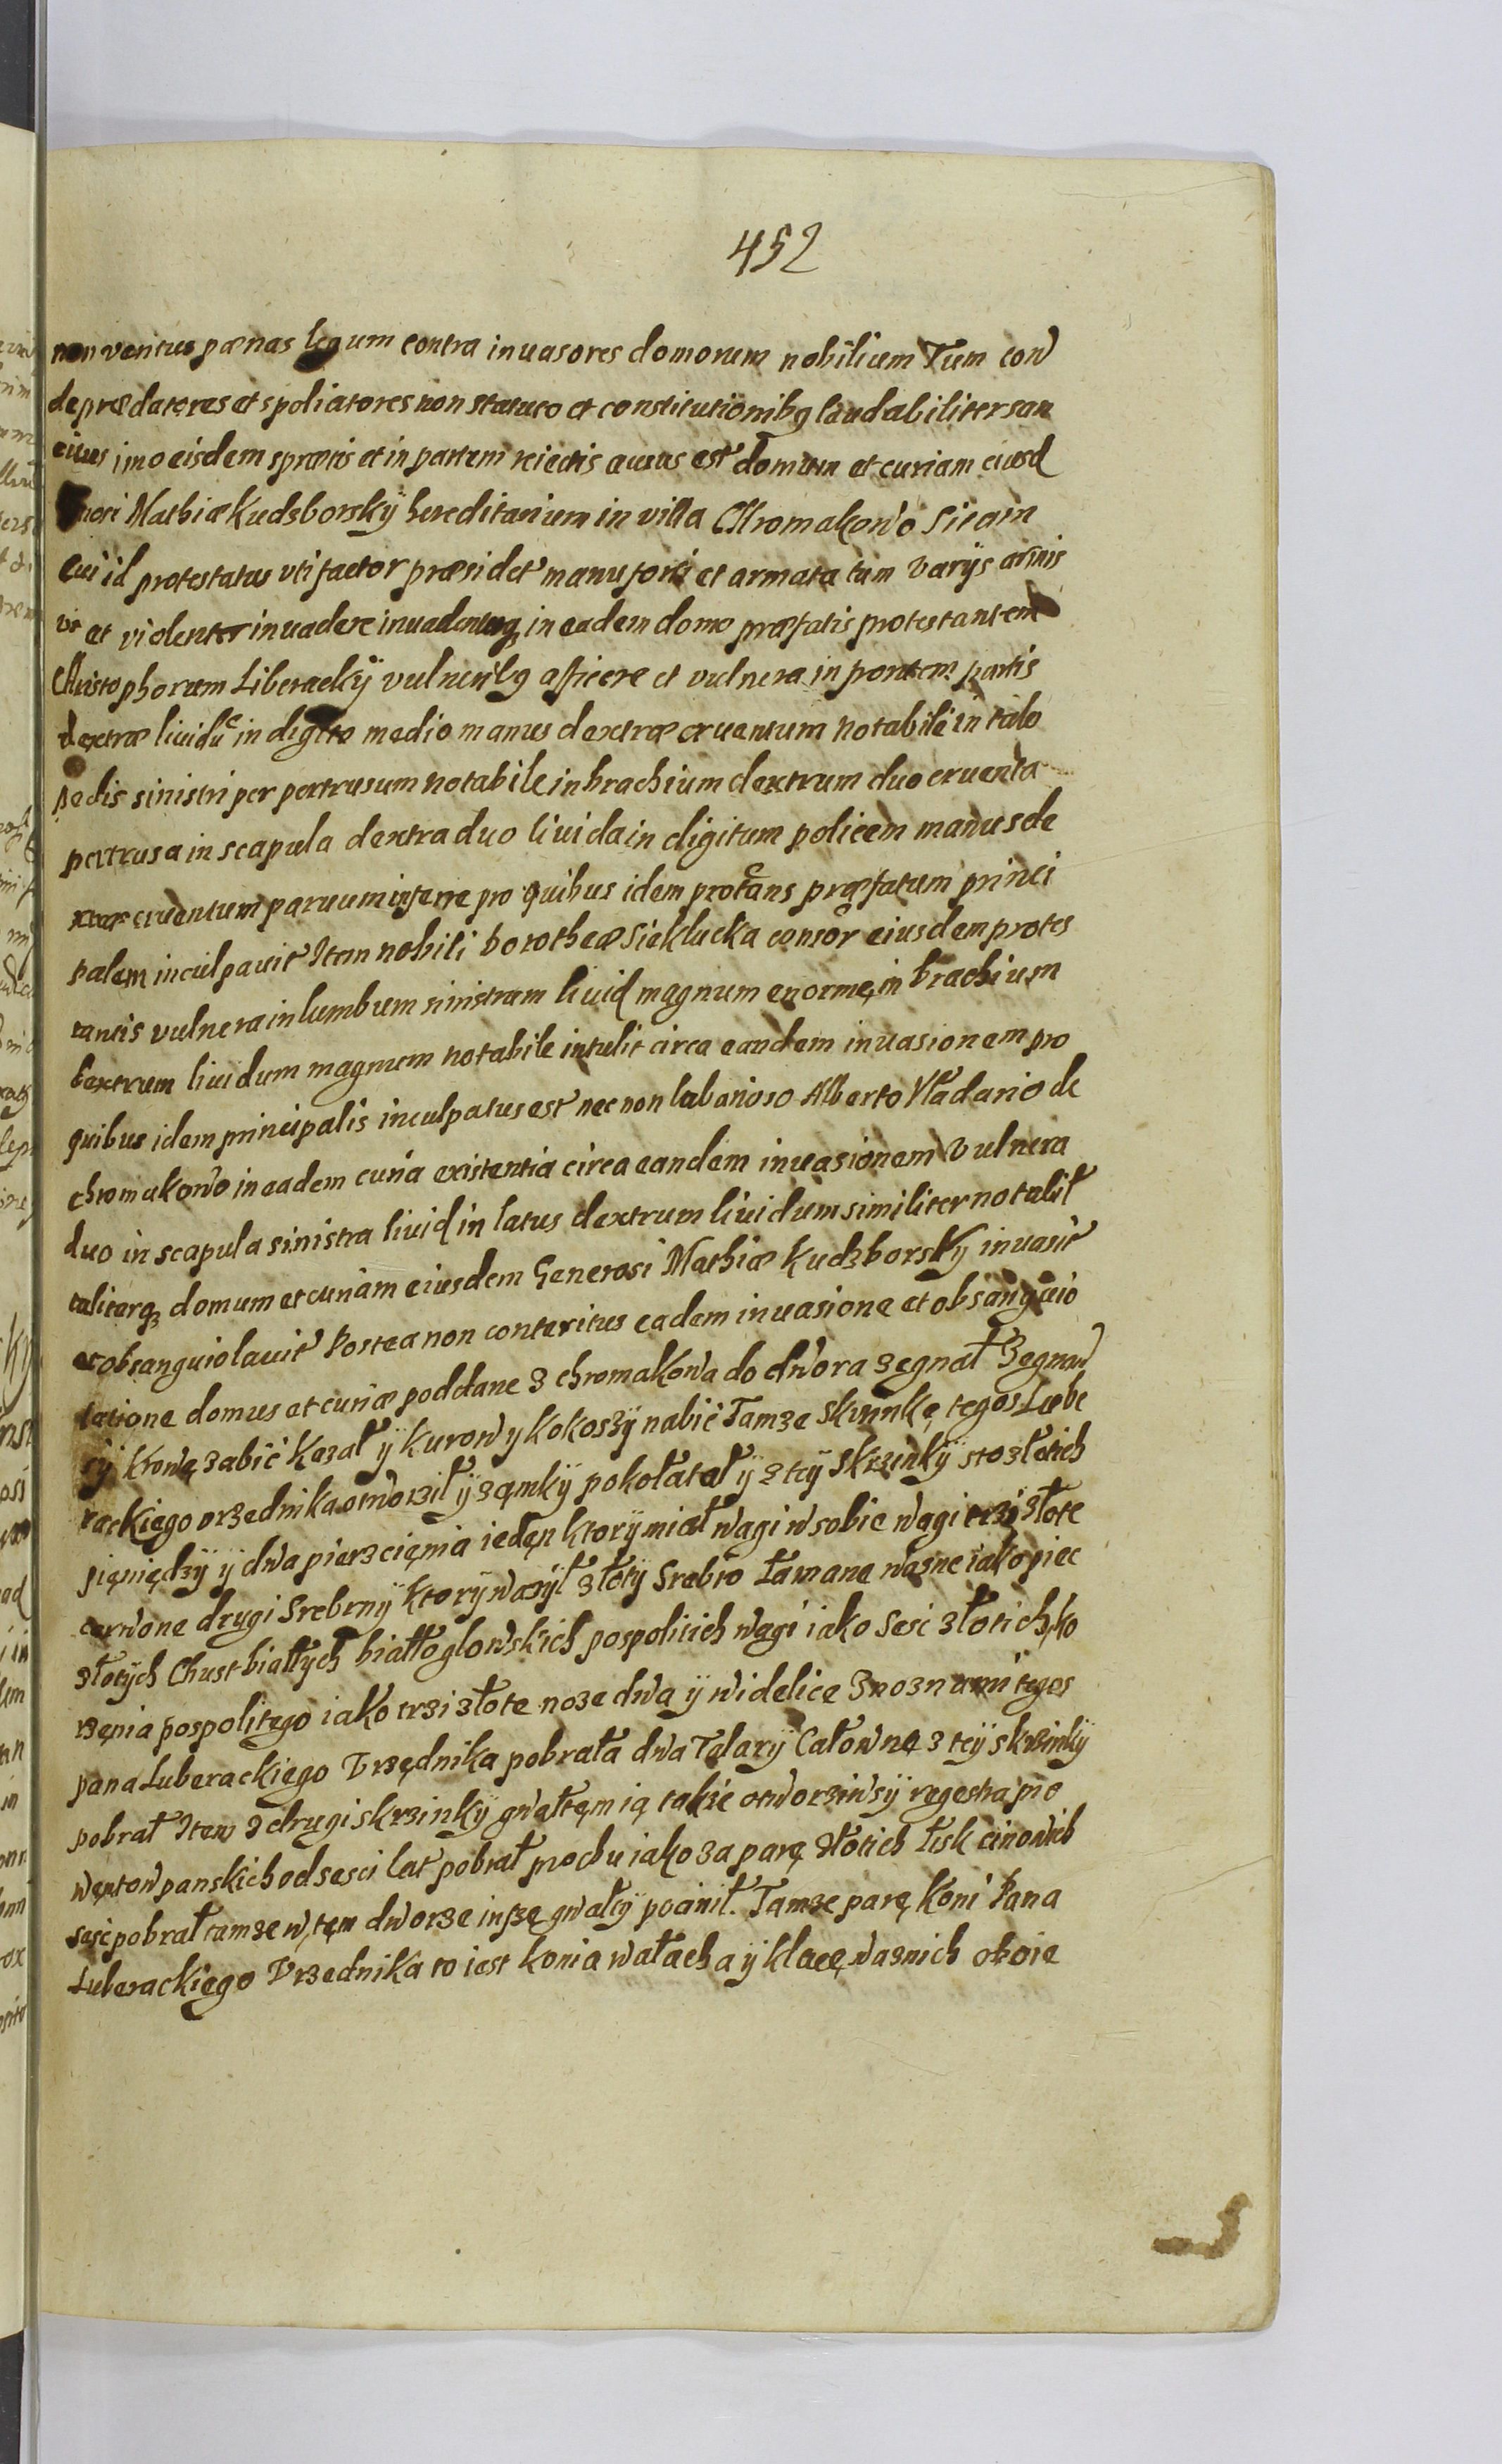 452
non veritus pœnas legum contra inuasores domorum nobilium Tum con
deprædatores et spoliatores non statuto et constitutionibq laudabiliter san
citus imo eisdem spretis et in partem reiectis ausus est domum et curiam eiusd
nerosi Mathiæ Kudzborskÿ hereditarium in villa Chromakowo Sitam
cui id protestatus vti factor præsidet manu forti et armata tum varijs armis
vi et violenter inuadere inuadentusq in eadem domo præfatis protestantem
Christophorum Liberackÿ vulneribq afficere et vulnera in pontem partis
dextræ liuidũ in digito medio manus dextræ cruentum notabile in talo
pedis sinistri per pertrusum notabile in brachium dextrum duo cruenta
pertrusa in scapula dextra duo liuida in digitum policem manus de
xtræ cruentum paruum inferre pro quibus idem protans præfatum princi
palem inculpauit Item nobili Dorotheæ Sieklucka consor eiusdem protes
tantis vulnera in lumbum sinistram liuid magnum enorme in brachium
dextrum liuidum magnum notabile intulit circa eandem inuasionem pro
quibus idem principalis inculpatus est nec non laborioso Alberto Vładario de
chromakowo in eadem curia existentia circa eandem inuasionem vulnera
duo in scapula sinistra liuid in latus dextrum liuidum similiter notabil
taliterq domum et curiam eiusdem Generosi Mathiæ Kudzborskÿ inuasit
et obsanguiolauit Postea non conteritus eadem inuasione et obsanguio
latione domus et curiæ poddane z chromakowa do dwora zegnał Zegnaw
sÿ krowę zabić kazał ÿ kurow y kokoszÿ nabić Tamze skrzinkę tegos Lube
rackiego vrzednika otworził ÿ zamkÿ pokołatał ÿ z teÿ skrzinkÿ sto złotich
pieniędzÿ ÿ dwa pierzcięnia ieden ktorÿ miał wagi w sobie wagi trzi złote
cerwone drugi Srebrnÿ ktorÿ wazÿł złotÿ Srebro łamane wazne iako piec
złotÿch Chust białÿch białłogłowskich pospolitich wagi iako sesc złotich ko
rzęnia pospolitego iako trzi złote noze dwa ÿ widelice z noznami tegos
pana Luberackiego Vrzędnika pobrała dwa Talarÿ Całowne z teÿ skrzinkÿ
pobrał Item z drugi skrzinkÿ gwałtęm ią takze otworziwsÿ regestra pro
wentow panskich od sesci lat pobrał prochu iako za parę złotich łisk cinowich
sesc pobrał tamze w tem dworze insze gwałtÿ poczinił. Tamze parę koni Pana
Luberackiego Vrzednika to iest konia wałacha ÿ klacę wasnich oboie